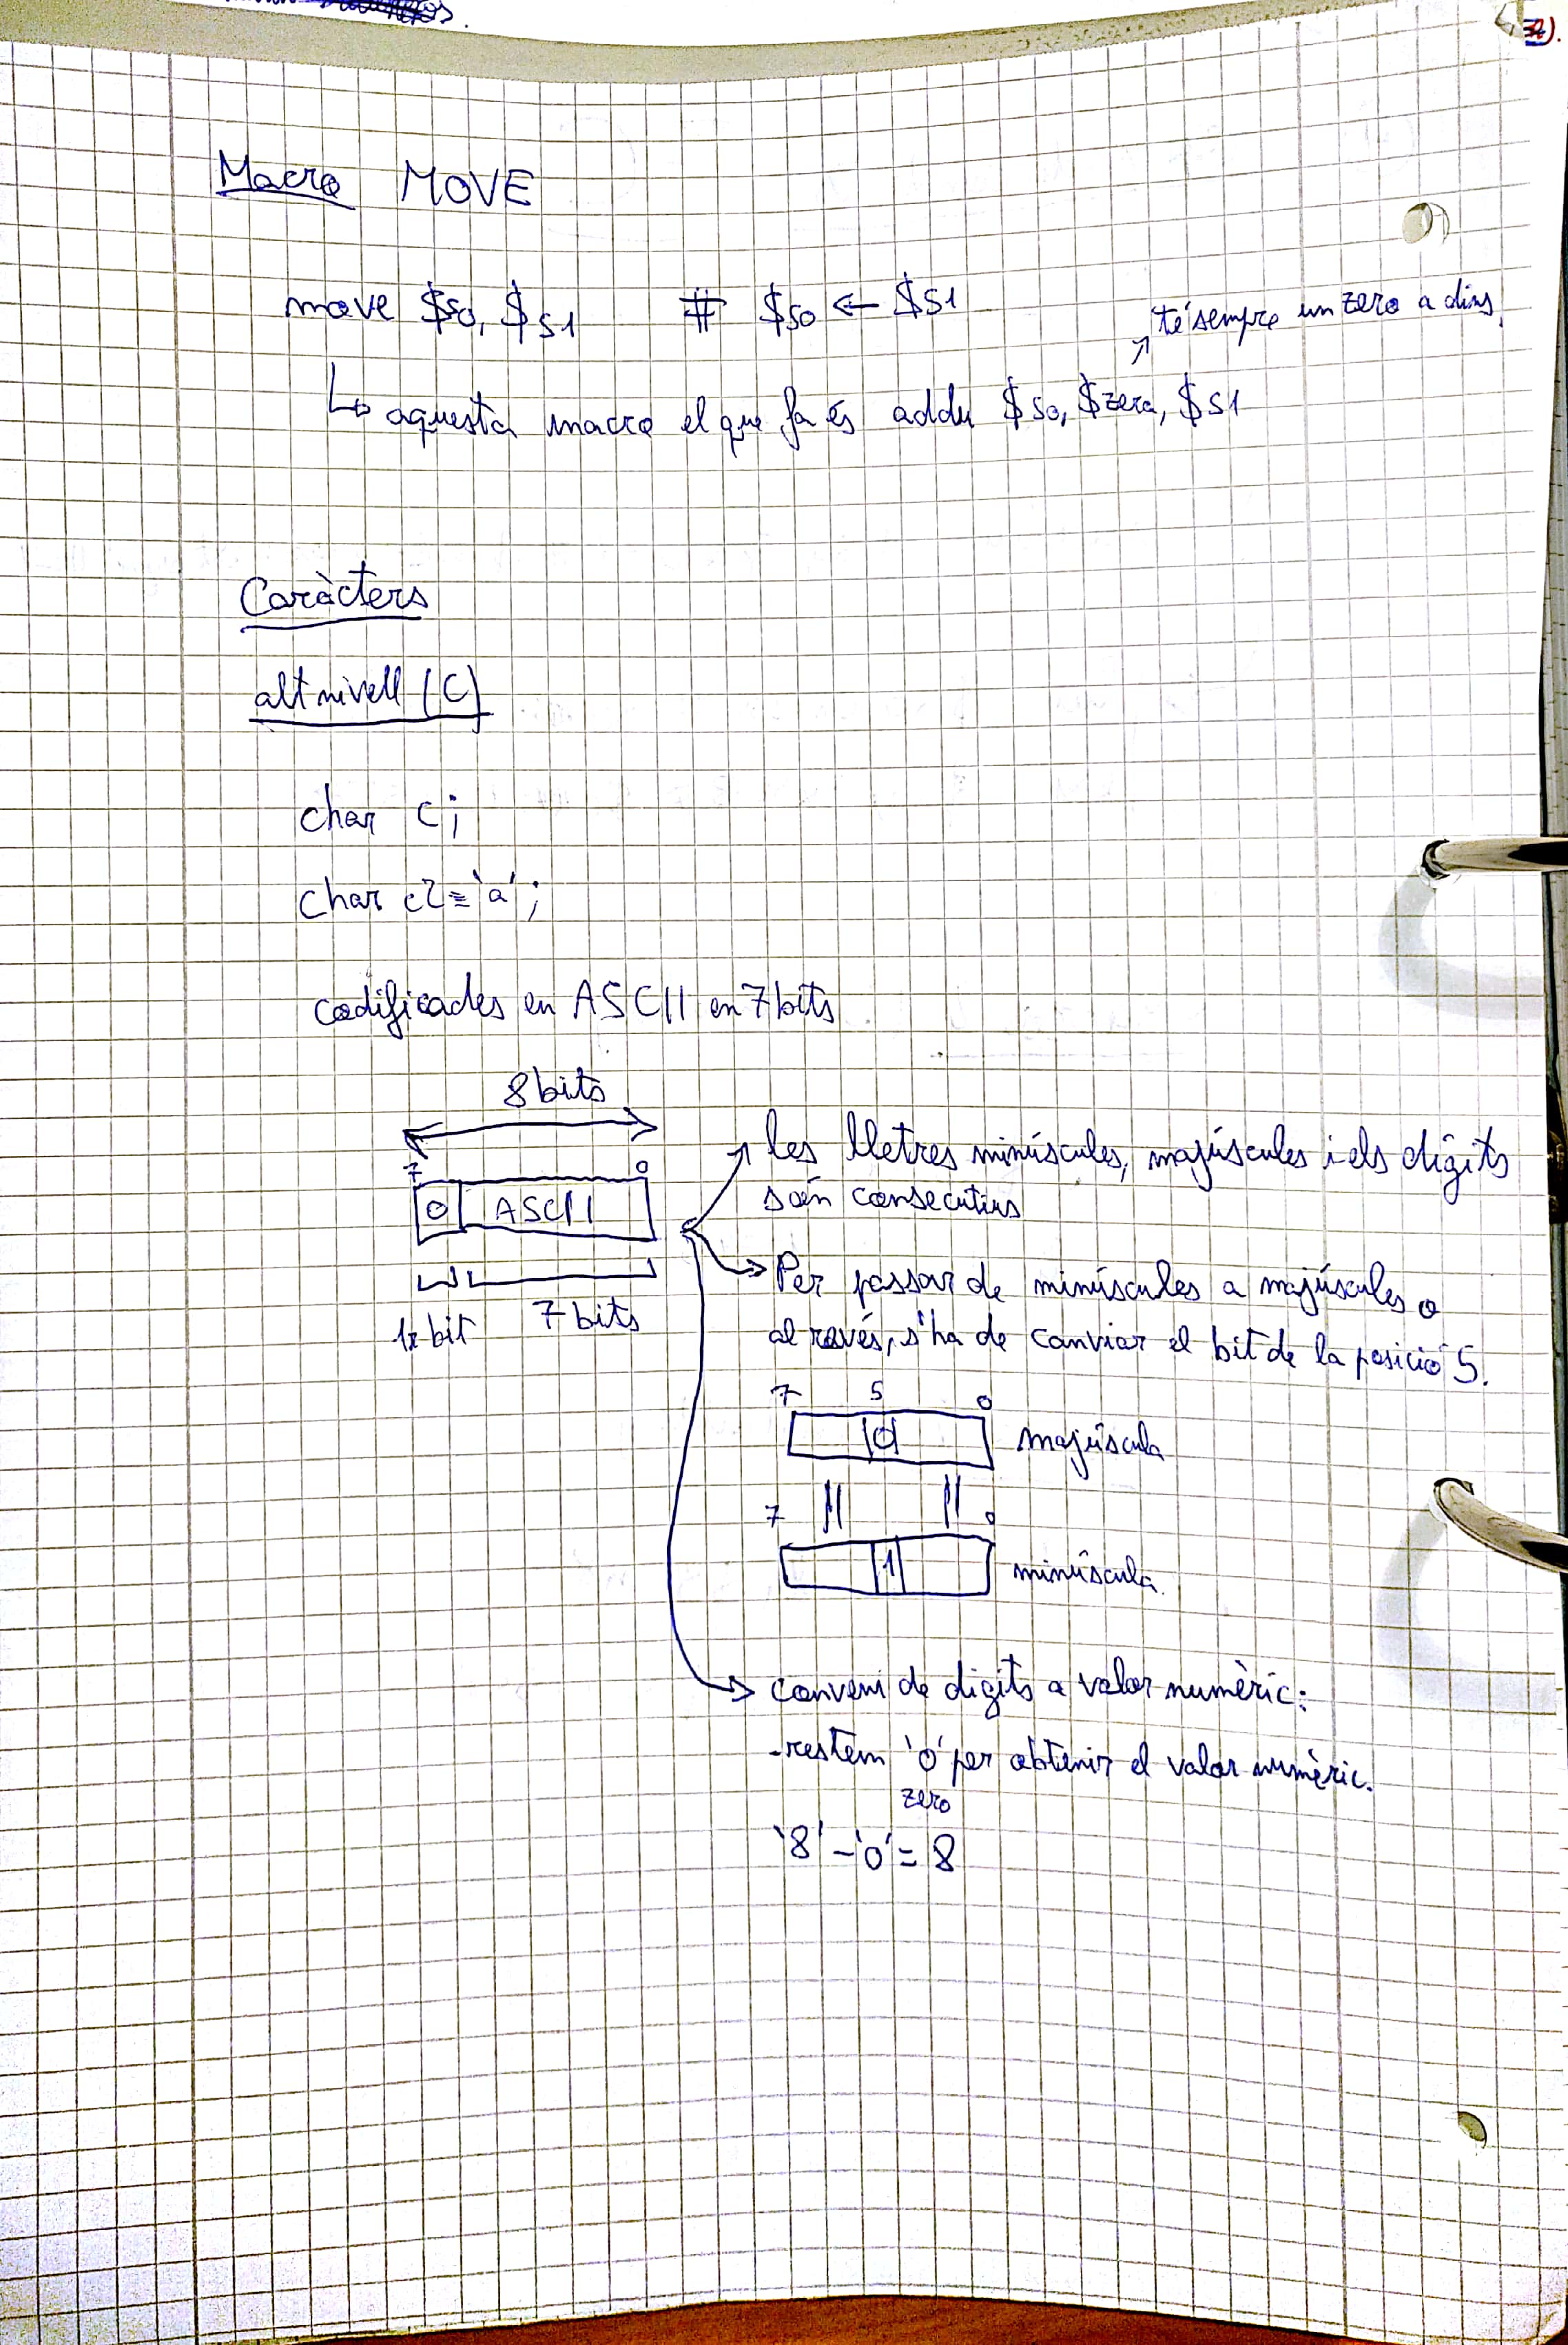 Macro MOVE
move $s0, $s1 # $s0 ← $s1
té sempre un zero a dins.
↳ aquesta macro el que fa és addu $s0, $zero, $s1
Caràcters
alt nivell (C)
char c;
char c2 = 'a';
codificades en ASCII en 7 bits
8 bits
7 0
0 ASCII
1 bit 7 bits
les lletres minúscules, majúscules i els dígits
són consecutius
Per passar de minúscules a majúscules o
al revés, s'ha de canviar el bit de la posició 5.
7 5 0
0 majúscula
7 0
1 minúscula.
conveni de digits a valor numèric:
-restem '0' per obtenir el valor numèric.
zero
'8' - '0' = 8